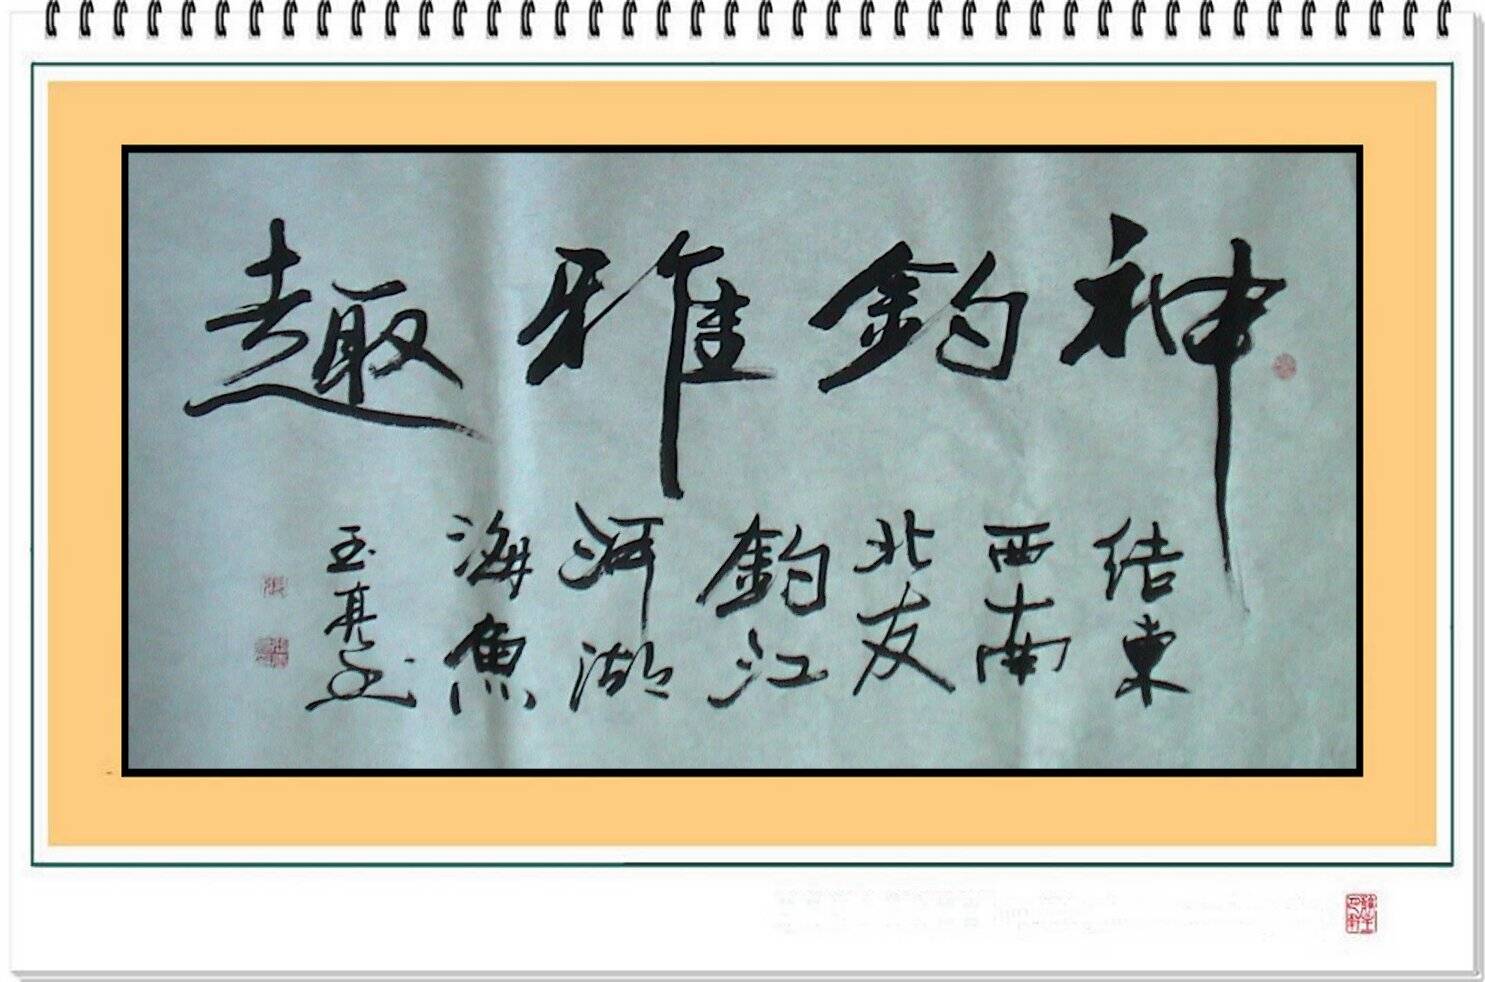 神釣雅趣
结東
西南
北友
釣江
河湖
海魚
玉亮